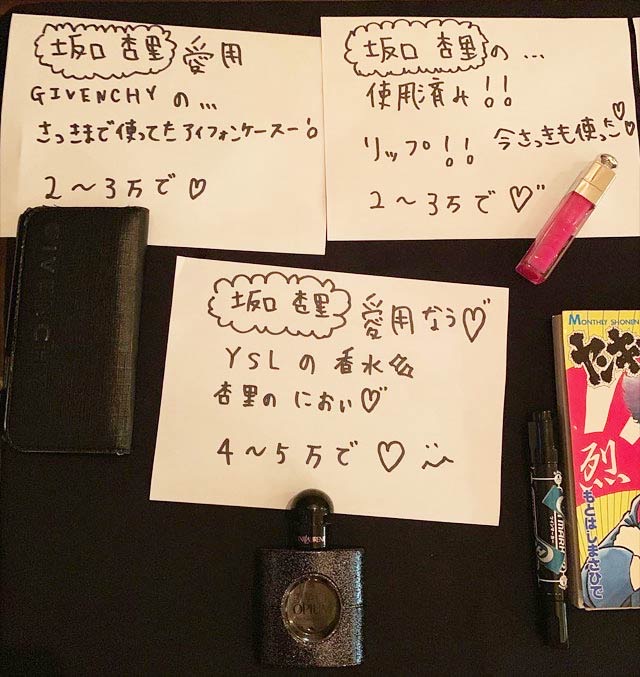 坂口 杏里 愛用
GIVENCHY の...
さっきまで使ってたアイフォンケースー!
2〜3万で♡
坂口 杏里の...
使用済み!!
リップ!! 今さっきも使った♡♡
2〜3万で♡
坂口 杏里 愛用なう♡
YSLの香水
杏里の におい♡
4〜5万で♡
GIVENCHY
OPIUM
MONTHLY SHONEN
ヤンキー
烈
もとはしまさひで